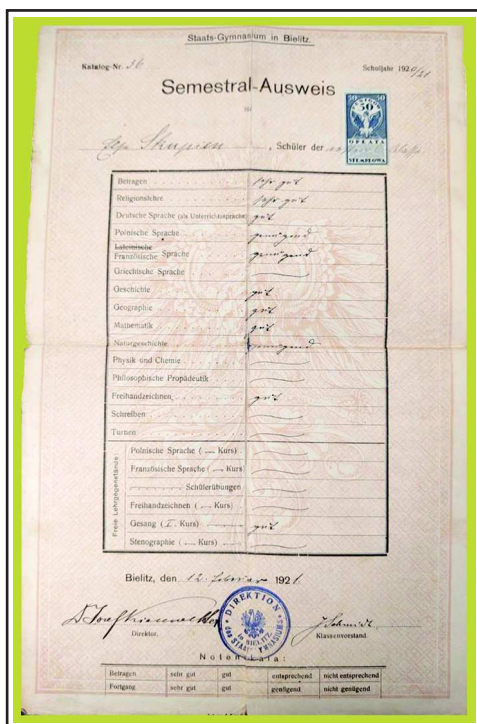 Staats-Gymnasium in Bielitz.
Katalog-Nr. 36 Schuljahr 1920/21
Semestral-Ausweis
für
50 50
50
OPŁATA
STEMPLOWA
Skupien, Schüler der Klasse
Betragen sehr gut
Religionslehre sehr gut
Deutsche Sprache (als Unterrichtssprache) gut
Polnische Sprache genügend
Lateinische
Französische Sprache genügend
Griechische Sprache
Geschichte gut
Geographie gut
Mathematik gut
Naturgeschichte genügend
Physik und Chemie
Philosophische Propädeutik
Freihandzeichnen gut
Schreiben
Turnen
Freie Lehrgegenstände:
Polnische Sprache ( — Kurs)
Französische Sprache ( — Kurs)
Schülerübungen
Freihandzeichnen ( — Kurs)
Gesang (I. Kurs) gut
Stenographie ( — Kurs)
Bielitz, den 12. Februar 1921.
DIREKTION
des STAATSGYMNASIUMS
in BIELITZ
J. Schmidt
Direktor. Klassenvorstand.
Notenskala:
Betragen sehr gut gut entsprechend nicht entsprechend
Fortgang sehr gut gut genügend nicht genügend